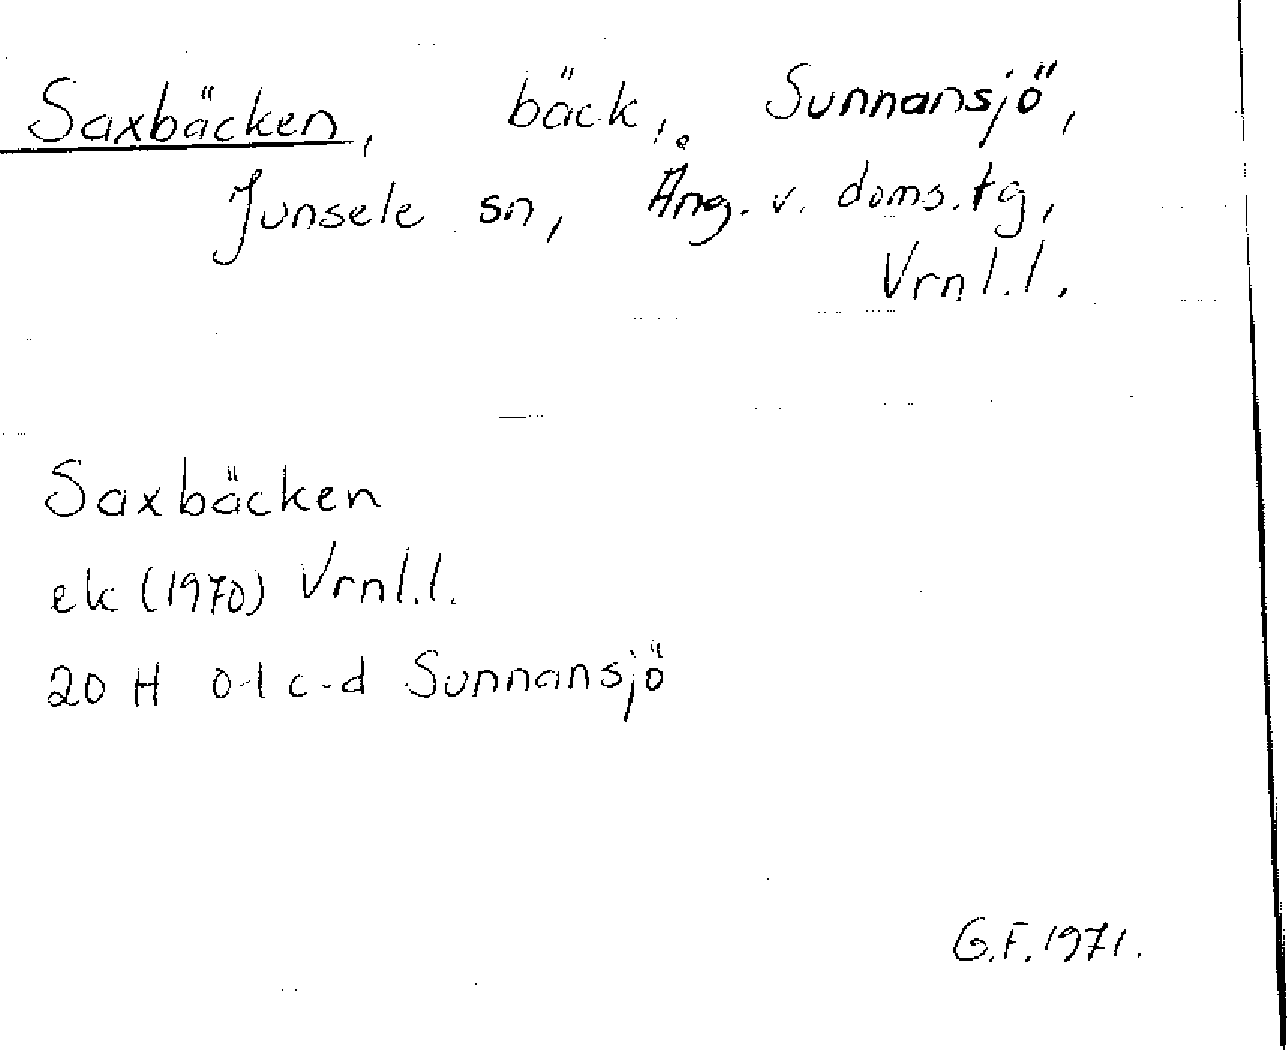 Saxbäcken, bäck, Sunnansjö,
Junsele sn, Ång. v. doms.tg,
Vrnl.l.
Saxbäcken
ek (1970) Vrnl.l.
20 H 0-1 c-d Sunnansjö
G.F. 1971.